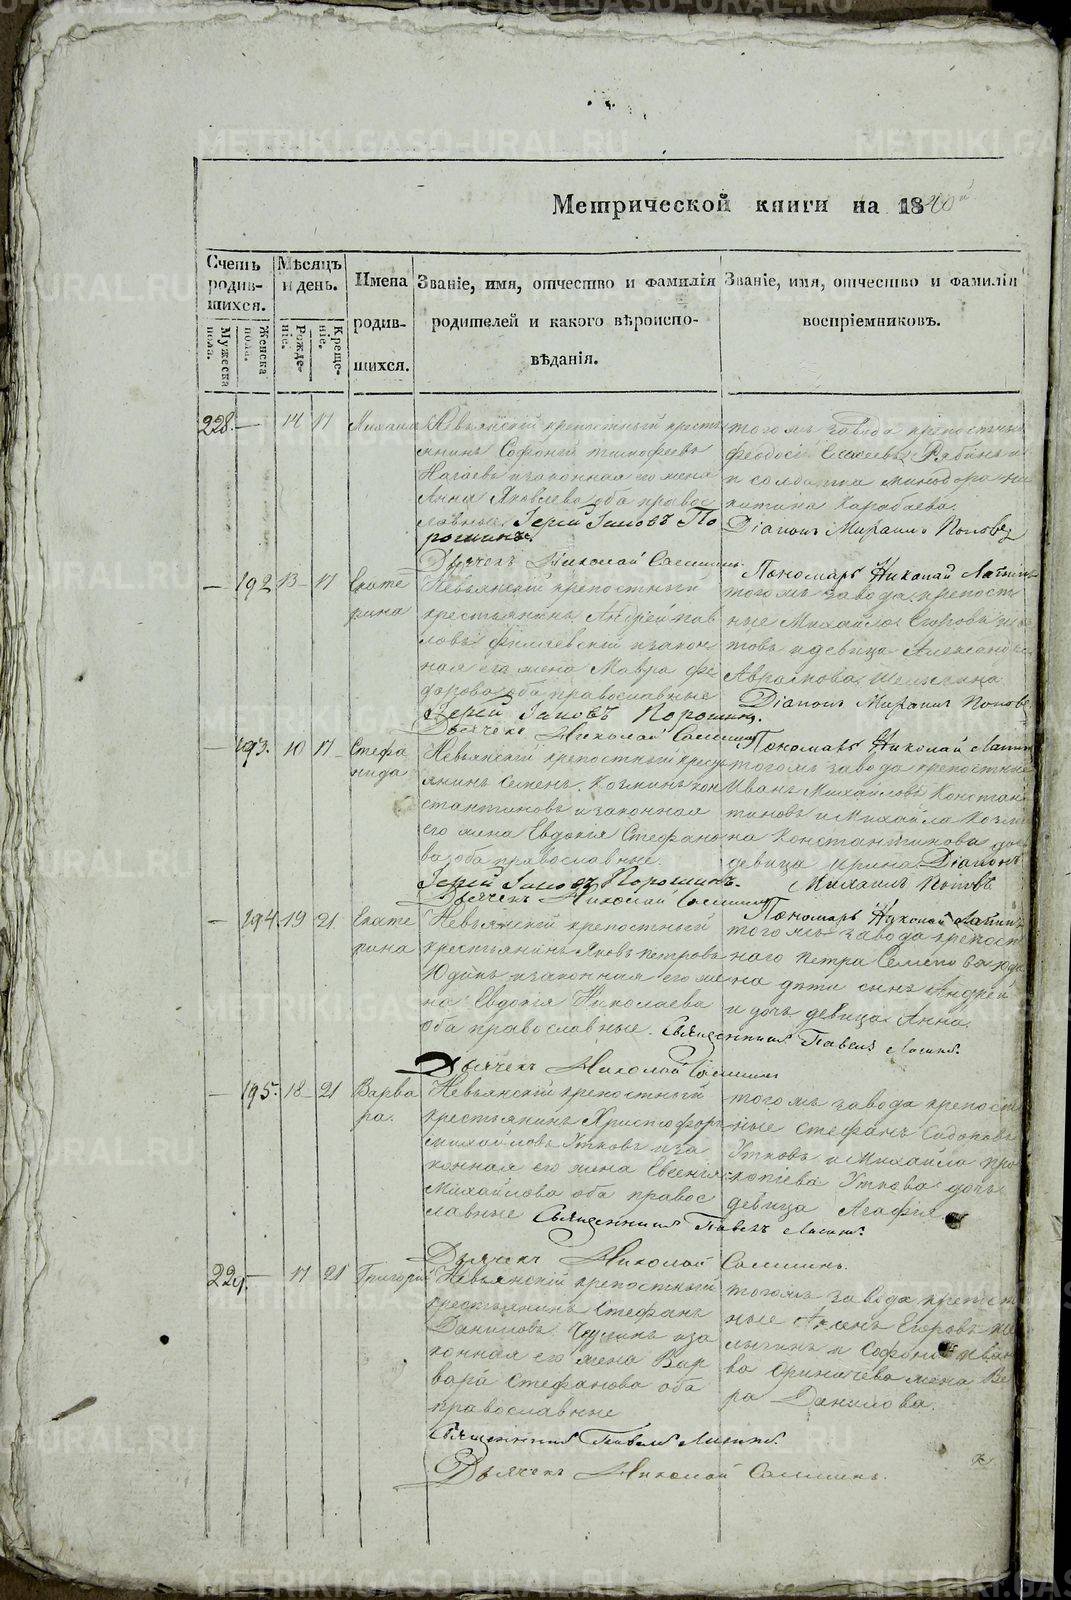 Метрической книги на 1840й
Счетъ родив-шихся.
Мѣсяцъ и день.
Имена родив-шихся.
Званіе, имя, отчество и фамилія
родителей и какого вѣроиспо-
вѣданія.
Званіе, имя, отчество и фамилія
воспріемниковъ.
Мужеска пола.
Женска пола.
Рожде-ніе.
Креще-ніе.
228. — 14 17 Михаилъ
Невьянскій крепостный кресть
янинъ Софоній тимофеевъ
и законная его жена
Анна Яковлева оба правос
лавные. Іерей Іаковъ По
рошинъ.
Дьячекъ Николай
тогожъ завода крепостные
феодосій Елисеевъ
и солдатка Минодора ни
китина Карабаева.
Діаконъ Михаилъ Поповъ
Пономарь Николай
— 192 13 17 Екате
рина
Невьянскій крепостный
крестьянинъ Андрей пав
ловъ и закон
ная его жена Мавра фе
дорова оба православные
Іерей Іаковъ Порошинъ.
Дьячекъ Николай
тогожъ завода крепост
ные Михайло Егоровъ
товъ и девица Александра
Авраамова
Діаконъ Михаилъ Поповъ
Пономарь Николай
— 193. 10 17 Стефа
нида
Невьянскій крепостный кресть
янинъ Семенъ Козминъ кон
стантиновъ и законная
его жена Евдокія Стефано
ва оба православные.
Іерей Іаковъ Порошинъ.
Дьячекъ Николай
тогожъ завода крепостные
Иванъ Михайловъ Констан
тиновъ и Михайла Козми
на Константинова дочь
девица Ирина. Діаконъ
Михаилъ Поповъ
Пономарь Николай
— 194. 19 21 Екате
рина
Невьянскій крепостный
крестьянинъ Яковъ петровъ
Юдинъ и законная его же
на Евдокія Николаева
оба православные. Священникъ Павелъ
Дьячекъ Николай
тогожъ завода крепост
наго петра Семенова Юди
на дети сынъ Андрей
и дочь девица Анна.
— 195. 18 21 Варва
ра.
Невьянскій крепостный
крестьянинъ Христофоръ
михайловъ Утковъ и за
конная его жена Евгенія
Михайлова оба правос
лавные Священникъ Павелъ
Дьячекъ Николай
тогожъ завода крепост
ные Стефанъ Сидоровъ
Утковъ и Михайла про
копіева Уткова дочь
девица Агафія.
229. — 17 21 Григорій
Невьянскій крепостный
крестьянинъ Стефанъ
Даниловъ и за
конная его жена Вар
вара Стефанова оба
православные
Священникъ Павелъ
Дьячекъ Николай
тогожъ завода крепост
ные Егоровъ
и Софона Ивано
ва жена Ве
ра Данилова.
METRIKI.GASO-URAL.RU